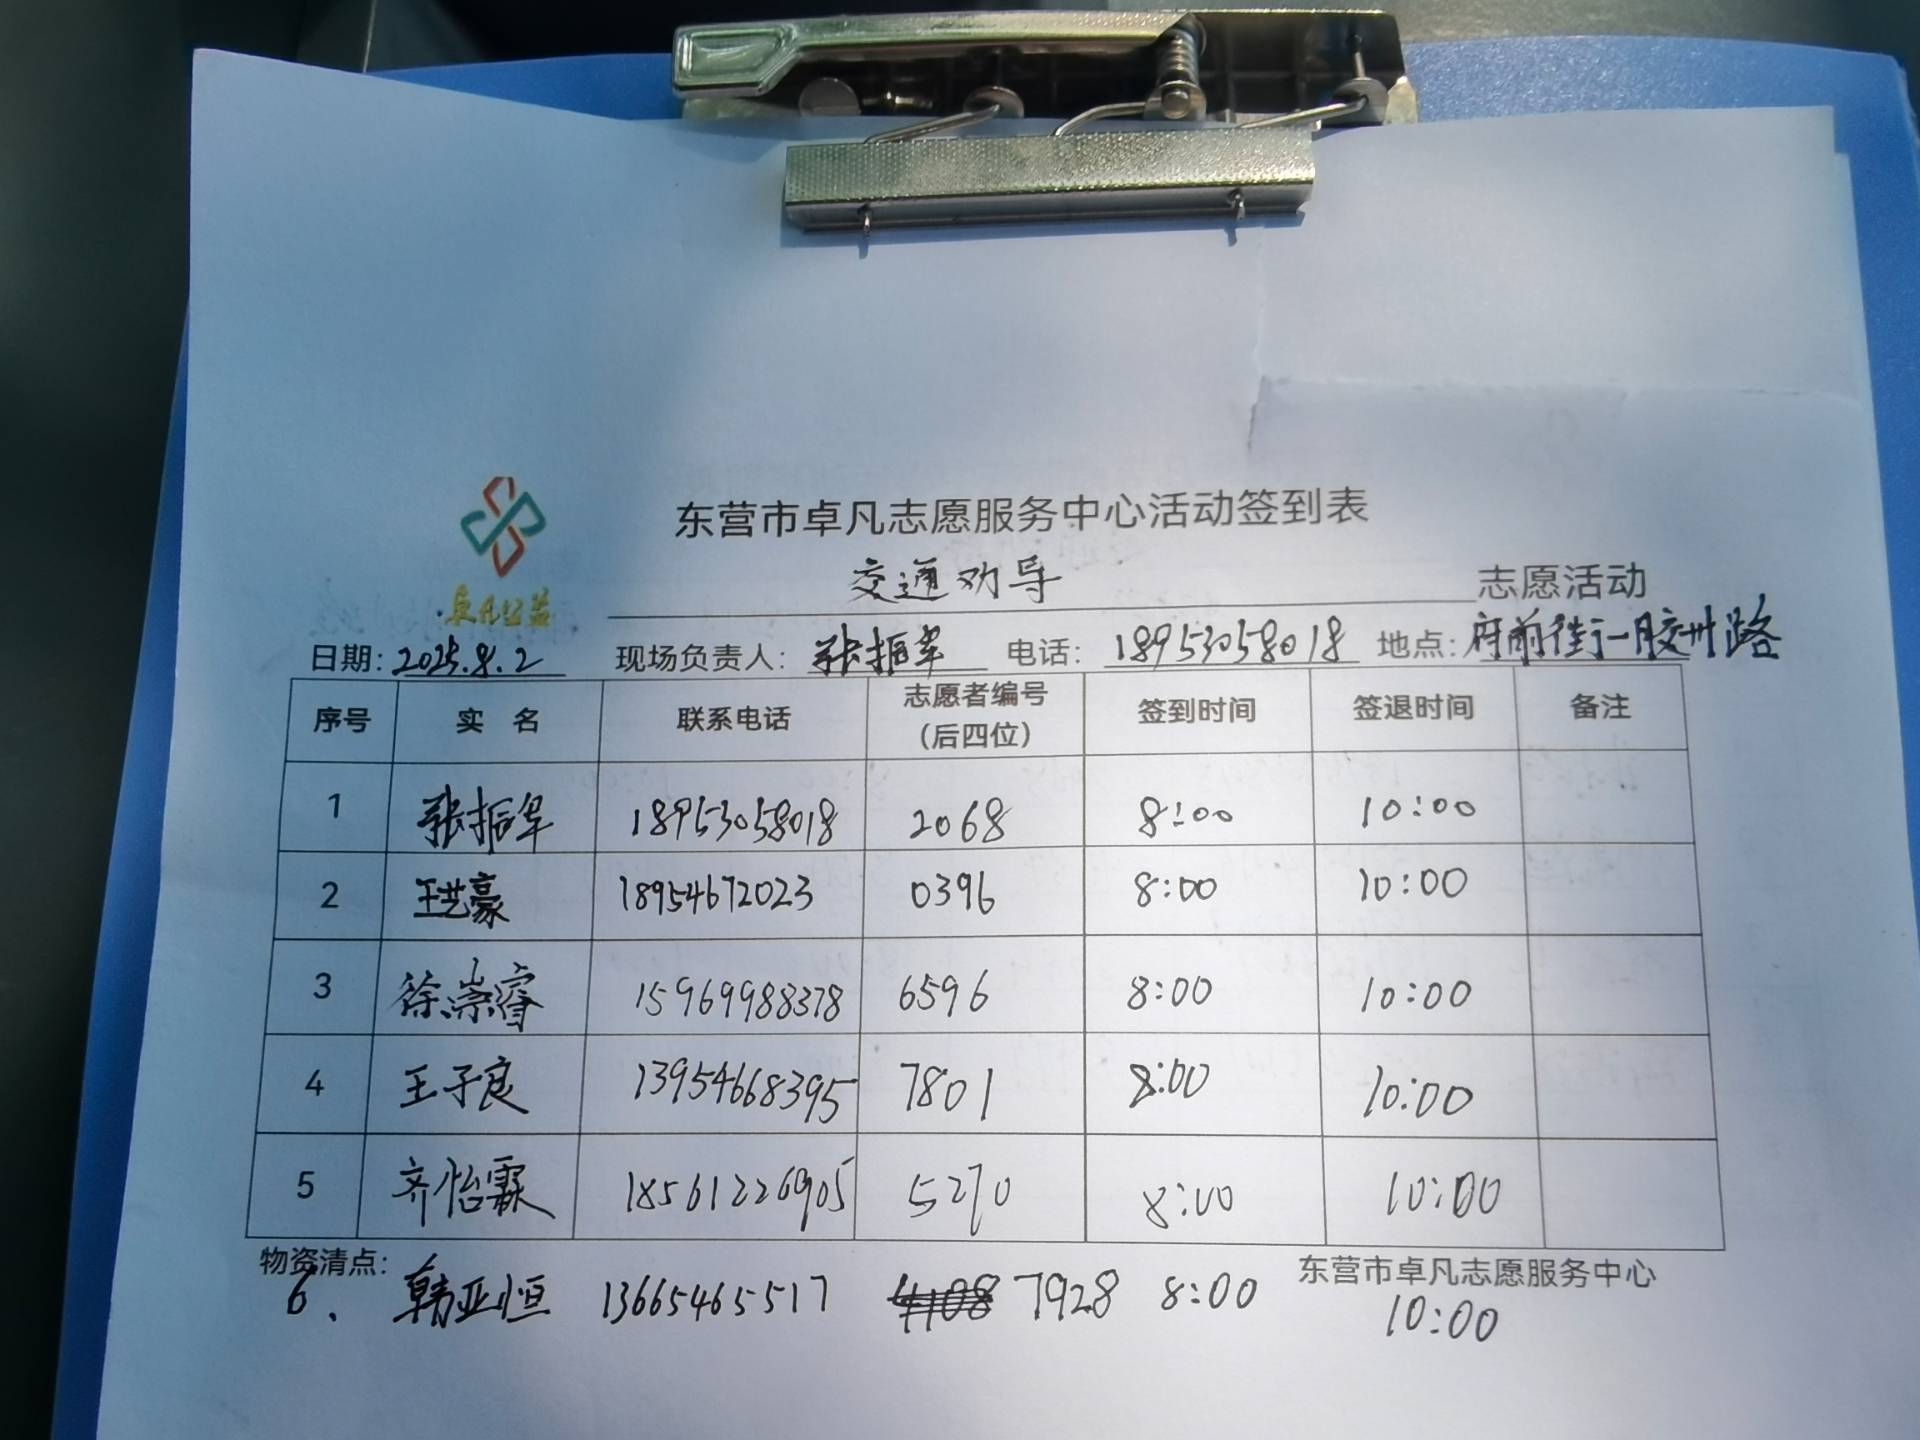 东营市卓凡志愿服务中心活动签到表
交通劝导 志愿活动
卓凡公益
日期: 2025.8.2 现场负责人: 张振军 电话: 18953058018 地点: 府前街一胶州路
序号 实 名 联系电话 志愿者编号(后四位) 签到时间 签退时间 备注
1 张振军 18953058018 2068 8:00 10:00
2 王艺豪 18954672023 0396 8:00 10:00
3 徐崇睿 15969988378 6596 8:00 10:00
4 王子良 13954668395 7801 8:00 10:00
5 齐怡霖 18561226905 5270 8:00 10:00
物资清点: 东营市卓凡志愿服务中心
6、韩亚恒 13665465517 7928 8:00 10:00